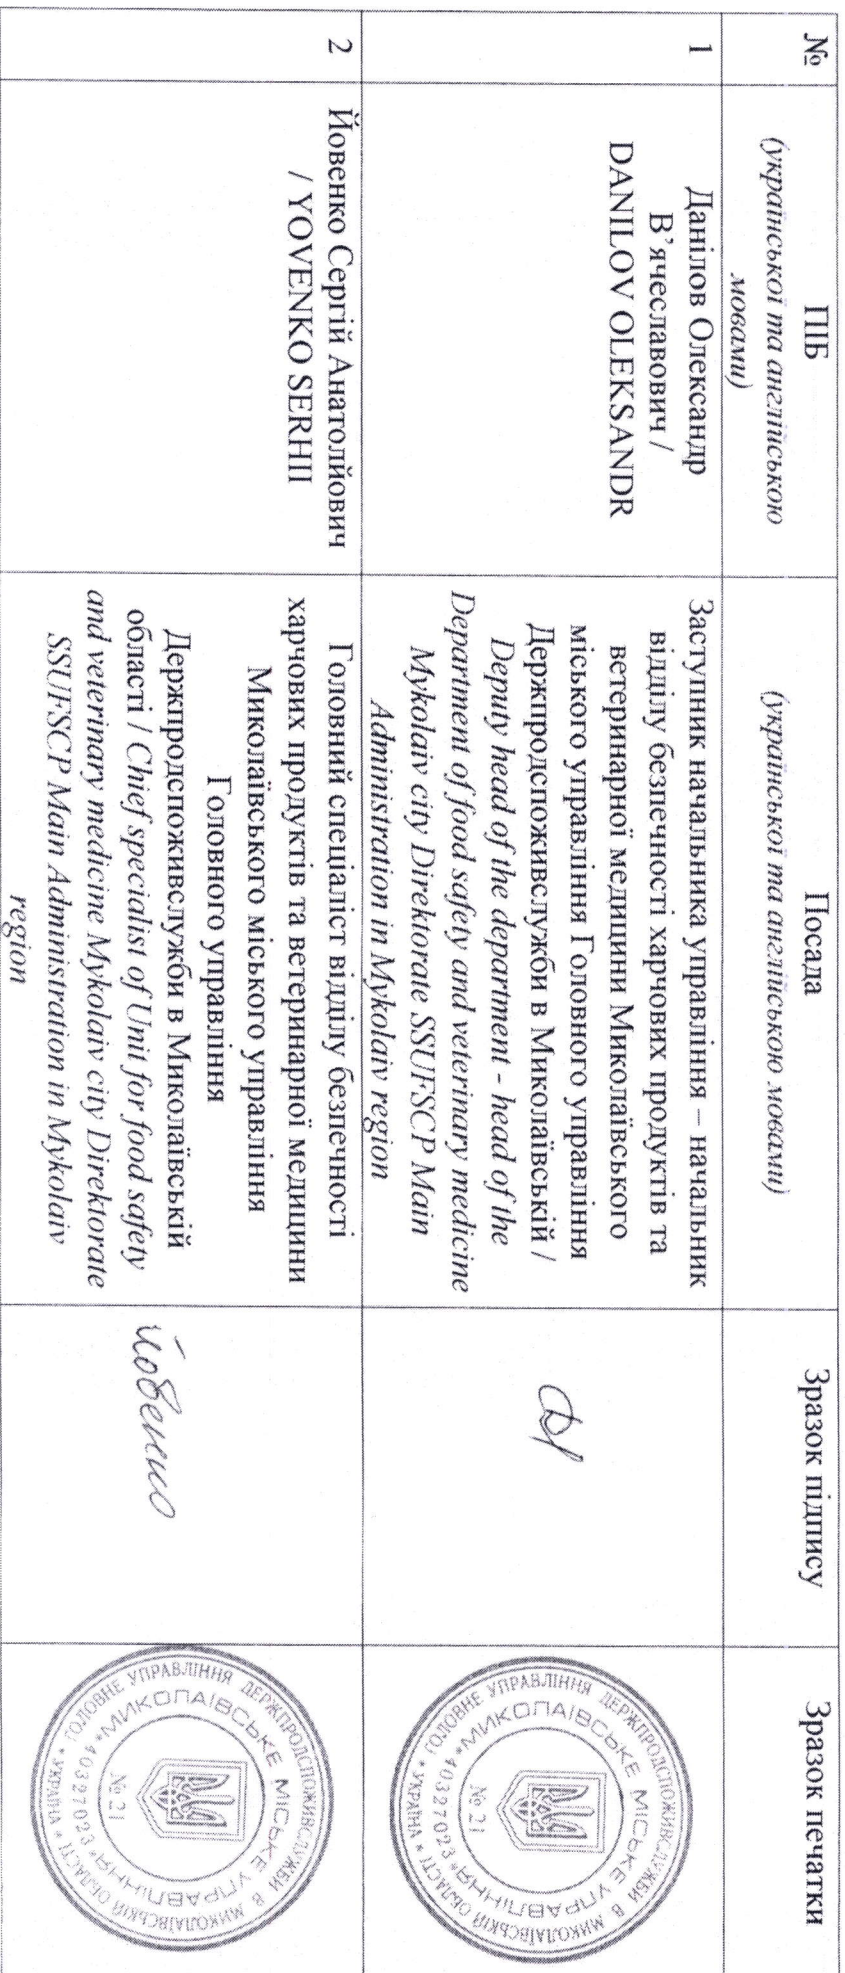 №
ПІБ
(української та англійською
мовами)
Посада
(української та англійською мовами)
Зразок підпису
Зразок печатки
1
Данілов Олександр
В’ячеславович /
DANILOV OLEKSANDR
Заступник начальника управління – начальник
відділу безпечності харчових продуктів та
ветеринарної медицини Миколаївського
міського управління Головного управління
Держпродспоживслужби в Миколаївській /
Deputy head of the department - head of the
Department of food safety and veterinary medicine
Mykolaiv city Direktorate SSUFSCP Main
Administration in Mykolaiv region
ГОЛОВНЕ УПРАВЛІННЯ ДЕРЖПРОДСПОЖИВСЛУЖБИ В МИКОЛАЇВСЬКІЙ ОБЛАСТІ * УКРАЇНА *
МИКОЛАЇВСЬКЕ МІСЬКЕ УПРАВЛІННЯ * 40327023 *
№ 21
2
Йовенко Сергій Анатолйович
/ YOVENKO SERHII
Головний спеціаліст відділу безпечності
харчових продуктів та ветеринарної медицини
Миколаївського міського управління
Головного управління
Держпродспоживслужби в Миколаївській
області / Chief specialist of Unit for food safety
and veterinary medicine Mykolaiv city Direktorate
SSUFSCP Main Administration in Mykolaiv
region
Йовенко
ГОЛОВНЕ УПРАВЛІННЯ ДЕРЖПРОДСПОЖИВСЛУЖБИ В МИКОЛАЇВСЬКІЙ ОБЛАСТІ * УКРАЇНА *
МИКОЛАЇВСЬКЕ МІСЬКЕ УПРАВЛІННЯ * 40327023 *
№ 21